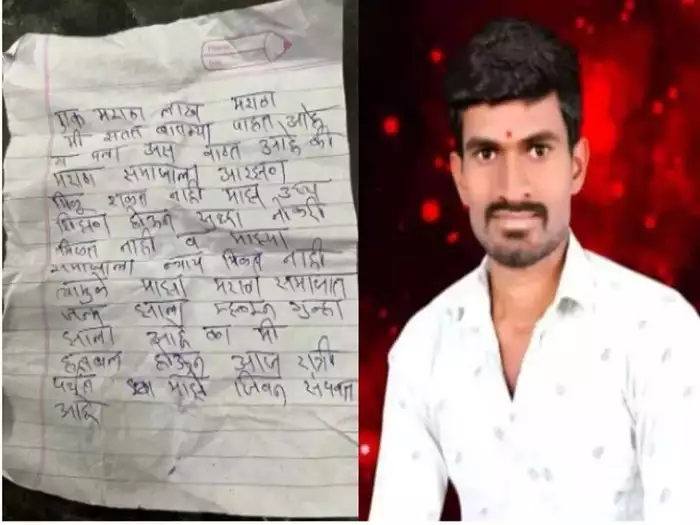 एक मराठा लाख मराठा
मी सतत बातम्या पाहत आहे
व मला असे वाटत आहे की
मराठा समाजाला आरक्षण
मिळू शकत नाही माझे उच्च
शिक्षण होऊन सुध्दा नोकरी
मिळत नाही व माझ्या
समाजाला न्याय मिळत नाही
त्यामुळे माझा मराठा समाजात
जन्म झाला म्हणून गुन्हा
झाला आहे का मी
हतबल होऊन आज रात्री
माझे जिवन संपवत
आहे